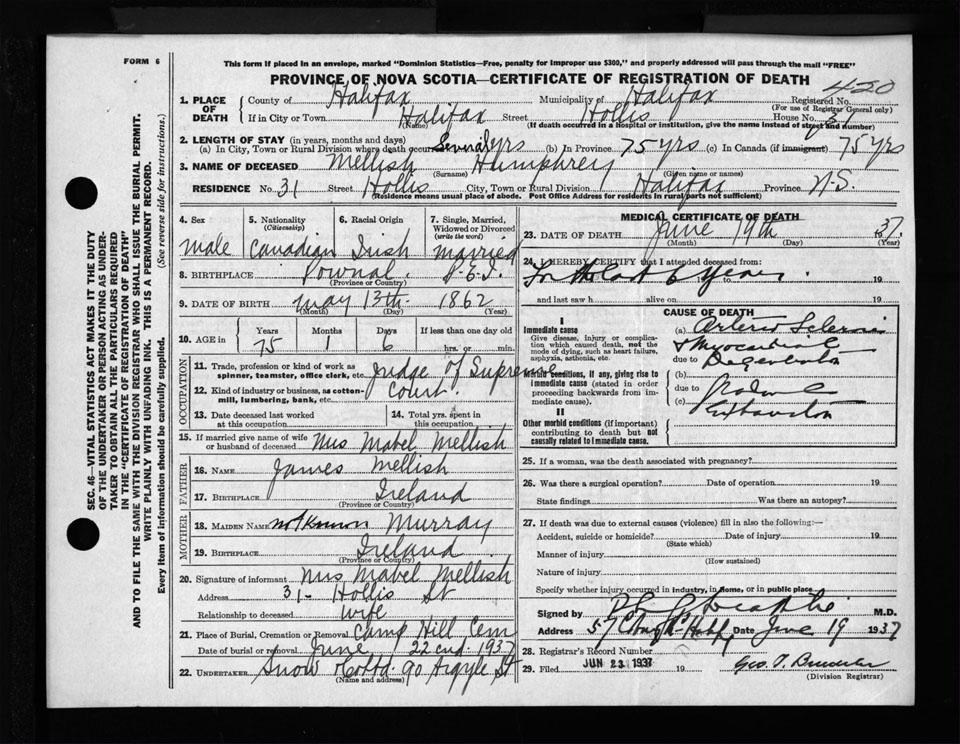 FORM 6
This form if placed in an envelope, marked "Dominion Statistics—Free, penalty for improper use $300," and properly addressed will pass through the mail "FREE"
PROVINCE OF NOVA SCOTIA—CERTIFICATE OF REGISTRATION OF DEATH
420
1. PLACE OF DEATH
County of Halifax Municipality of Halifax Registered No.
(For use of Registrar General only)
If in City or Town Halifax Street Hollis House No. 31
(Name) (If death occurred in a hospital or institution, give the name instead of street and number)
2. LENGTH OF STAY (in years, months and days)
(a) In City, Town or Rural Division where death occurred Several yrs (b) In Province 75 yrs (c) In Canada (if immigrant) 75 yrs
3. NAME OF DECEASED Mellish Humphrey
(Surname) (Given name or names)
RESIDENCE No. 31 Street Hollis City, Town or Rural Division Halifax Province N.S.
(Residence means usual place of abode. Post Office Address for residents in rural parts not sufficient)
4. Sex
male
5. Nationality
(Citizenship)
Canadian
6. Racial Origin
Irish
7. Single, Married, Widowed or Divorced
(write the word)
married
8. BIRTHPLACE Pownal. P.E.I.
(Province or Country)
9. DATE OF BIRTH May 13th 1862
(Month) (Day) (Year)
10. AGE in
Years Months Days If less than one day old
75 1 6 hrs. or min.
OCCUPATION
11. Trade, profession or kind of work as spinner, teamster, office clerk, etc. Judge of Supreme
12. Kind of industry or business, as cotton-mill, lumbering, bank, etc. Court.
13. Date deceased last worked at this occupation
14. Total yrs. spent in this occupation
15. If married give name of wife or husband of deceased Mrs Mabel Mellish
FATHER
16. NAME James Mellish
17. BIRTHPLACE Ireland
(Province or Country)
MOTHER
18. MAIDEN NAME not known Murray
19. BIRTHPLACE Ireland
(Province or Country)
20. Signature of informant Mrs Mabel Mellish
Address 31- Hollis St
Relationship to deceased wife
21. Place of Burial, Cremation or Removal Camp Hill Cem
Date of burial or removal June 22nd 1937
22. UNDERTAKER Snow & Co Ltd. 90 Argyle St
(Name and address)
MEDICAL CERTIFICATE OF DEATH
23. DATE OF DEATH June 19th 37.
(Month) (Day) (Year)
24. I HEREBY CERTIFY that I attended deceased from:
For the last 6 years. 19
and last saw h alive on 19
CAUSE OF DEATH
I
Immediate cause
Give disease, injury or complication which caused death, not the mode of dying, such as heart failure, asphyxia, asthenia, etc.
(a) Arterio Sclerosis
& Myocardial
due to Degeneration
Morbid conditions, if any, giving rise to immediate cause (stated in order proceeding backwards from immediate cause).
(b)
due to
(c) Exhaustion
II
Other morbid conditions (if important) contributing to death but not causally related to immediate cause.
25. If a woman, was the death associated with pregnancy?
26. Was there a surgical operation? Date of operation 19
State findings Was there an autopsy?
27. If death was due to external causes (violence) fill in also the following:—
Accident, suicide or homicide? Date of injury 19
(State which)
Manner of injury
(How sustained)
Nature of injury
Specify whether injury occurred in industry, in home, or in public place
Signed by M.D.
Address 57 Date June 19 1937
28. Registrar's Record Number
29. Filed JUN 23 1937 19
(Division Registrar)
SEC. 46—VITAL STATISTICS ACT MAKES IT THE DUTY
OF THE UNDERTAKER OR PERSON ACTING AS UNDER-
TAKER TO OBTAIN ALL THE PARTICULARS REQUIRED
IN THE "CERTIFICATE OF REGISTRATION OF DEATH"
AND TO FILE THE SAME WITH THE DIVISION REGISTRAR WHO SHALL ISSUE THE BURIAL PERMIT.
WRITE PLAINLY WITH UNFADING INK. THIS IS A PERMANENT RECORD.
Every item of information should be carefully supplied. (See reverse side for instructions.)